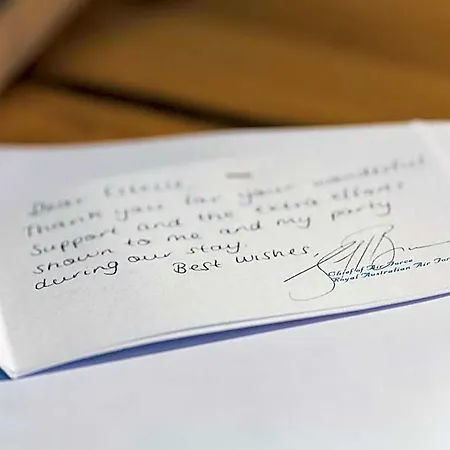 Dear Estelle,
Thank you for your wonderful
support and the extra efforts
shown to me and my party
during our stay.
Best Wishes,
Chief of Air Force
Royal Australian Air For